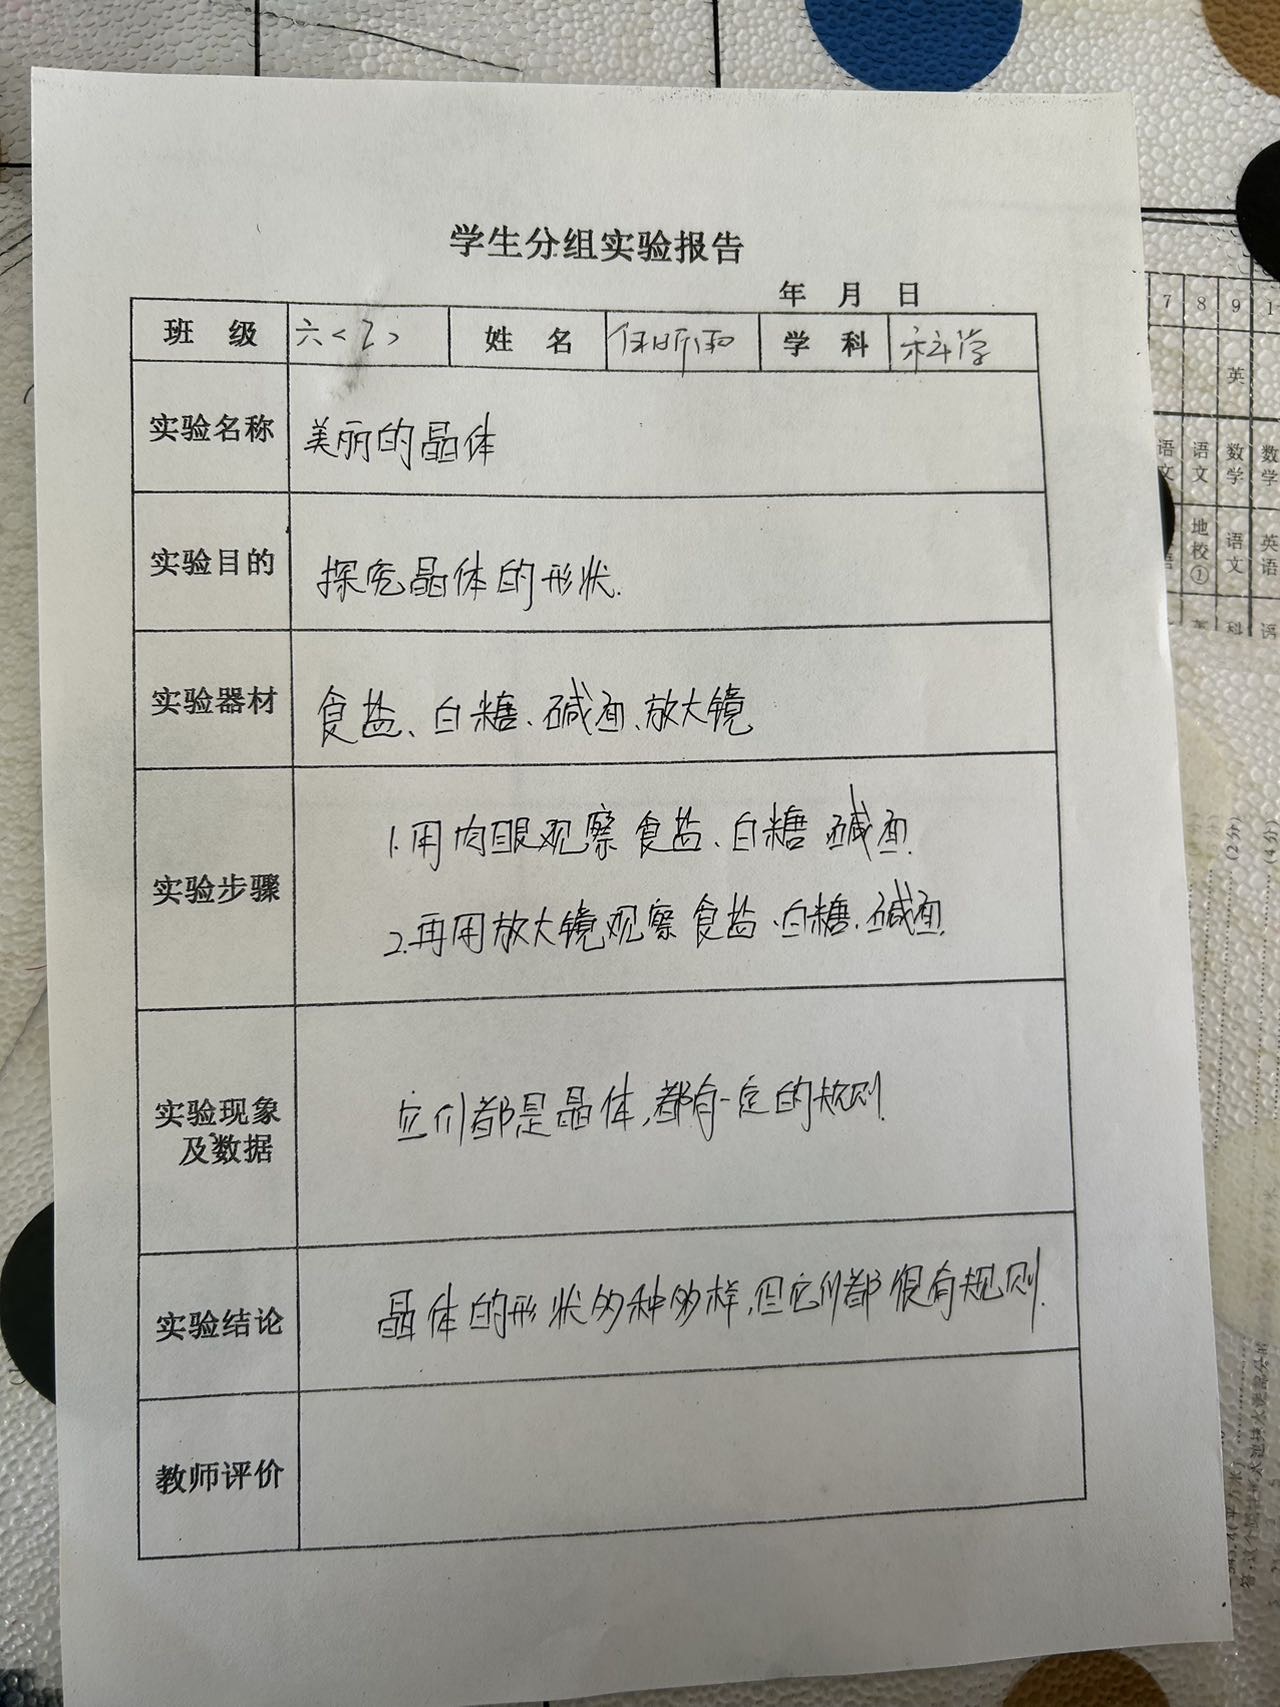 学生分组实验报告
年 月 日
班 级 六 姓 名 任昕雨 学 科 科学
实验名称 美丽的晶体
实验目的 探究晶体的形状.
实验器材 食盐、白糖、碱面、放大镜
实验步骤
1.用肉眼观察食盐、白糖 碱面.
2.再用放大镜观察食盐、白糖、碱面.
实验现象
及数据
它们都是晶体,都有一定的规则.
实验结论 晶体的形状多种多样,但它们都很有规则.
教师评价
7 8 9 1
英
语文 语文 数学 数学
地校① 语文 英语
科 语
(2分)
(4分)